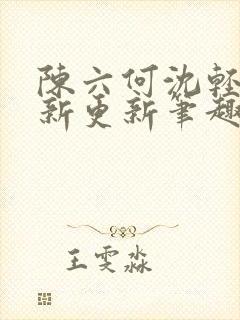 陳六何沈輕
新更新筆趣
王雯淼